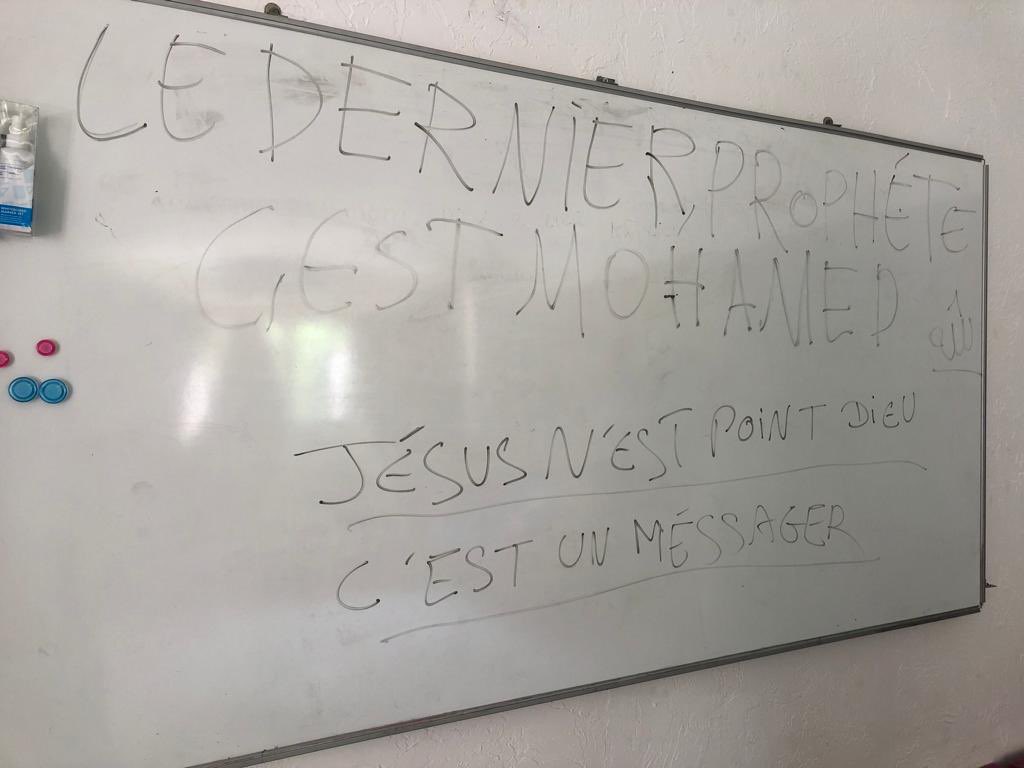 LE DERNIER, PROPHÉTE
C,EST MOHAMED
JÉSUS N'EST POINT DIEU
C'EST UN MÉSSAGER